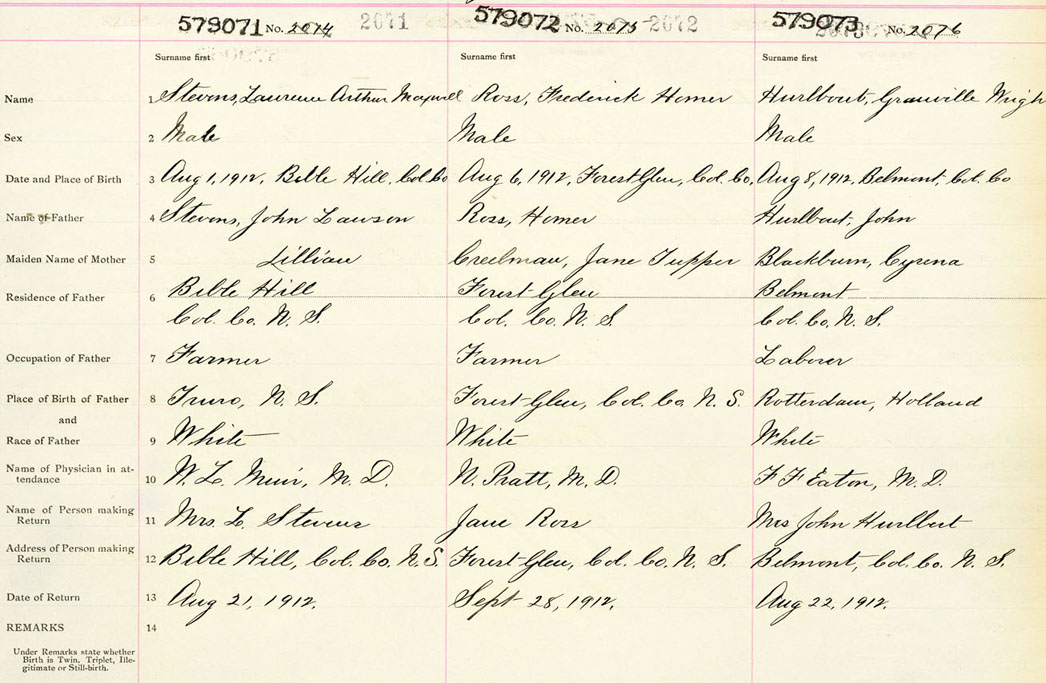 579071 No. 2074 2071 579072 No. 2075 2072 579073 No. 2076
Surname first Surname first Surname first
Name 1 Stevens, Laurence Arthur Maxwell Ross, Frederick Homer Hurlbout, Granville Wrigh
Sex 2 Male Male Male
Date and Place of Birth 3 Aug 1, 1912, Bible Hill, Col. Co Aug 6, 1912, Forest Glen, Col. Co. Aug 8, 1912, Belmont, Col. Co
Name of Father 4 Stevens, John Lawson Ross, Homer Hurlbout, John
Maiden Name of Mother 5 Lillian Creelman, Jane Tupper Blackburn, Cyrena
Residence of Father 6 Bible Hill Forest Glen Belmont
Col. Co. N. S. Col. Co. N. S. Col. Co. N. S.
Occupation of Father 7 Farmer Farmer Laborer
Place of Birth of Father 8 Truro, N. S. Forest Glen, Col. Co. N. S. Rotterdam, Holland
and
Race of Father 9 White White White
Name of Physician in at-
tendance 10 W. L. Muir, M. D. N. Pratt, M. D. F F Eaton, M. D.
Name of Person making
Return 11 Mrs. L. Stevens Jane Ross Mrs John Hurlbert
Address of Person making
Return 12 Bible Hill, Col. Co. N. S. Forest Glen, Col. Co. N. S. Belmont, Col. Co. N. S.
Date of Return 13 Aug 21, 1912. Sept 28, 1912. Aug 22, 1912.
REMARKS 14
Under Remarks state whether
Birth is Twin, Triplet, Ille-
gitimate or Still-birth.